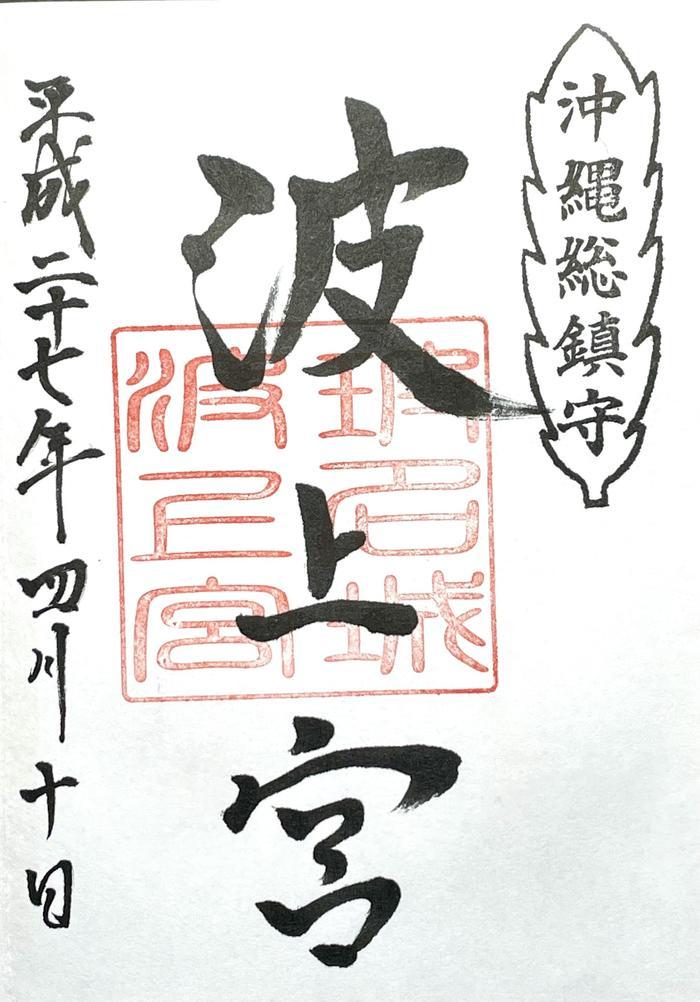 沖縄総鎮守
波上宮
玻名城
波上宮
平成二十七年四月十日